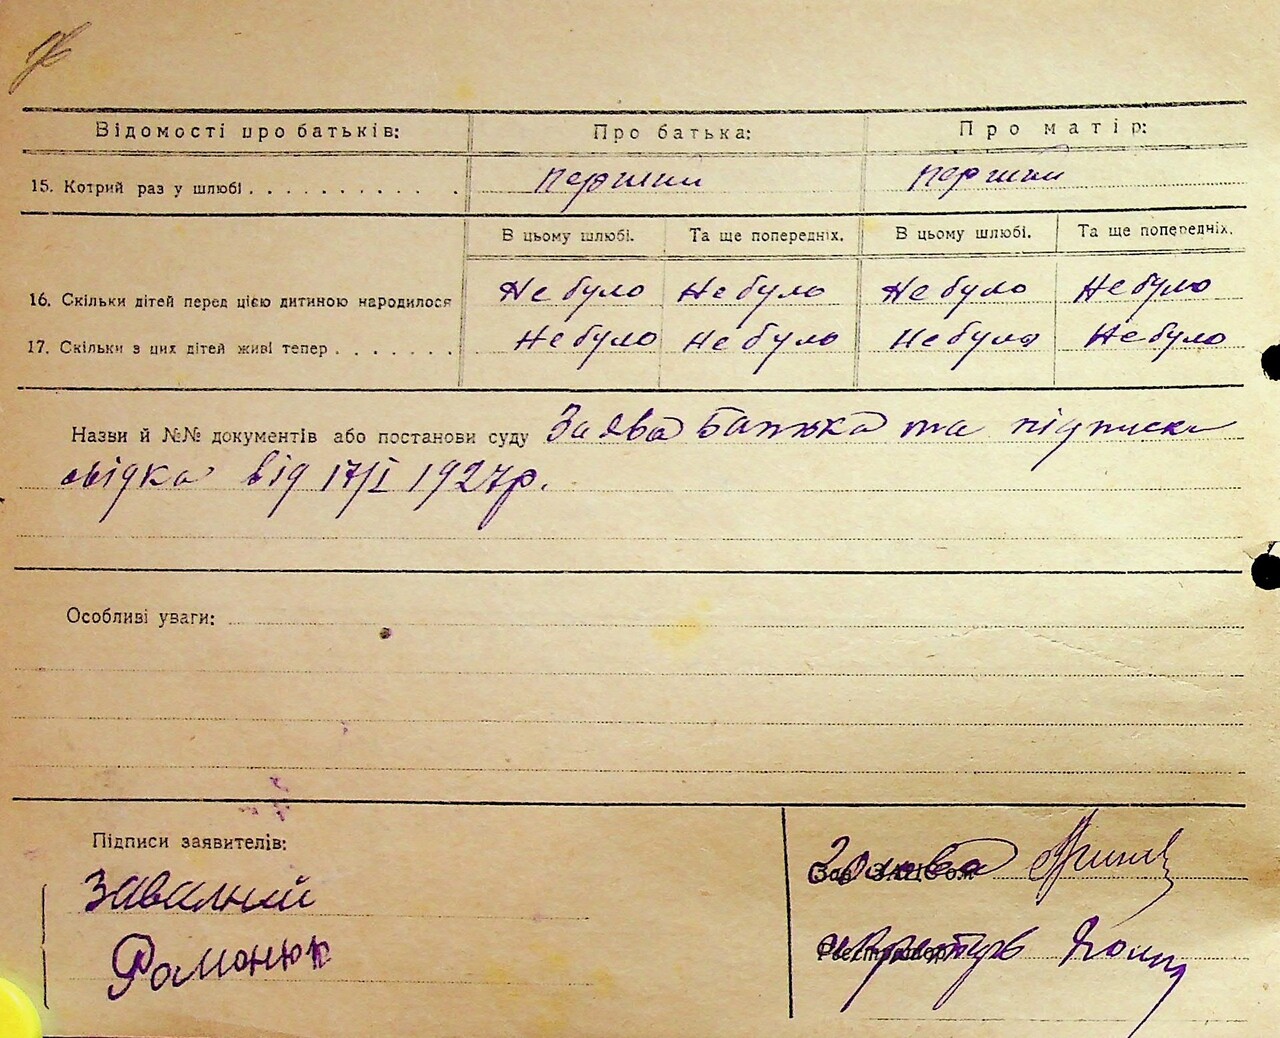 Відомості про батьків: Про батька: Про матір:
15. Котрий раз у шлюбі . . . . . . . . . . . . перший перший
В цьому шлюбі. Та ще попередніх. В цьому шлюбі. Та ще попередніх.
16. Скільки дітей перед цією дитиною народилося Не було Не було Не було Не було
17. Скільки з цих дітей живі тепер . . . . . . . Не було Не було Не було Не було
Назви й №№ документів або постанови суду Заява батька та підписка
свідка від 17/I 1927р.
Особливі уваги:
Підписи заявителів:
Завальний
Романюк
Голова
Секретар